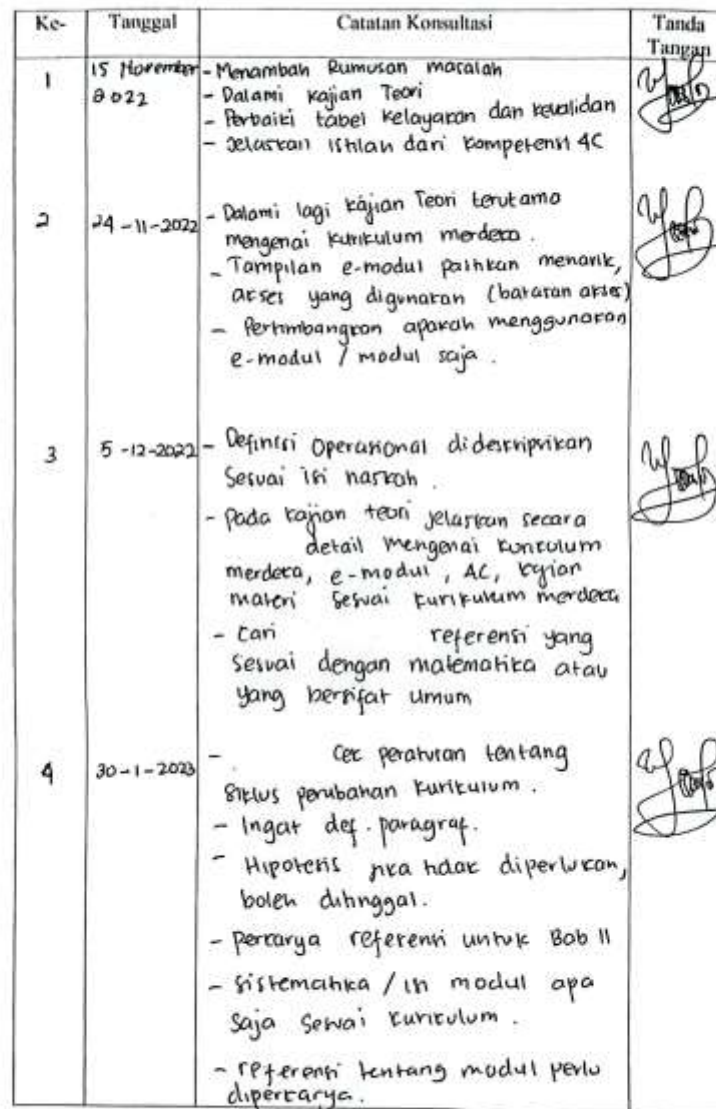 Ke- Tanggal Catatan Konsultasi Tanda
Tangan
1 15 November - Menambah Rumusan masalah
2022 - Dalami kajian Teori
- Perbaiki tabel kelayakan dan kevalidan
- Jelaskan istilah dari kompetensi 4C
2 24-11-2022 - Dalami lagi kajian Teori terutama
mengenai kurikulum merdeka.
- Tampilan e-modul pastikan menarik,
akses yang digunakan (batasan akses)
- Pertimbangkan apakah menggunakan
e-modul / modul saja.
3 5-12-2022 - Definisi Operasional dideskripsikan
Sesuai isi naskah.
- Pada kajian teori jelaskan secara
detail mengenai kurikulum
merdeka, e-modul, 4C, kajian
materi sesuai kurikulum merdeka
- Cari referensi yang
sesuai dengan matematika atau
yang bersifat umum
4 30-1-2023 - Cek peraturan tentang
siklus perubahan kurikulum.
- Ingat def. paragraf.
- Hipotesis jika tidak diperlukan,
boleh ditinggal.
- perkaya referensi untuk Bab II
- sistematika / isi modul apa
saja sesuai kurikulum.
- referensi tentang modul perlu
diperkaya.